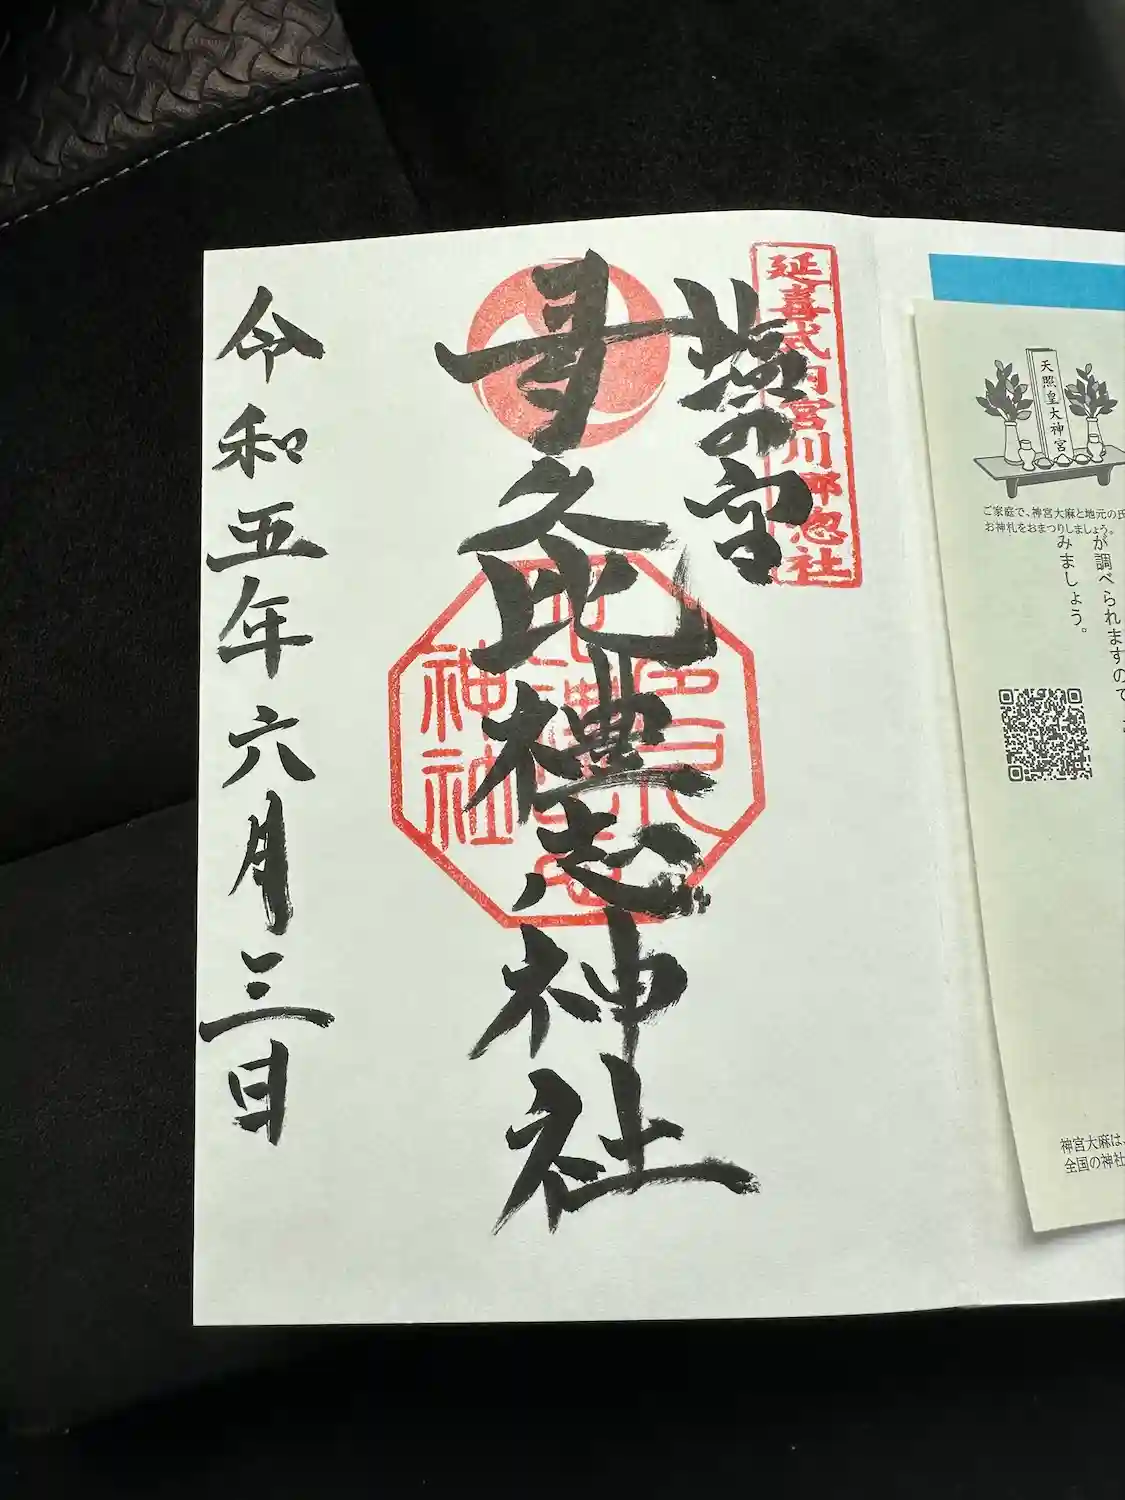 延喜式内宮川郷惣社
塩の宮
多久比禮志神社
神社
令和五年六月三日
天照皇大神宮
ご家庭で、神宮大麻と地元の氏
お神札をおまつりしましょう。
が調べられますので
みましょう。
神宮大麻は、
全国の神社